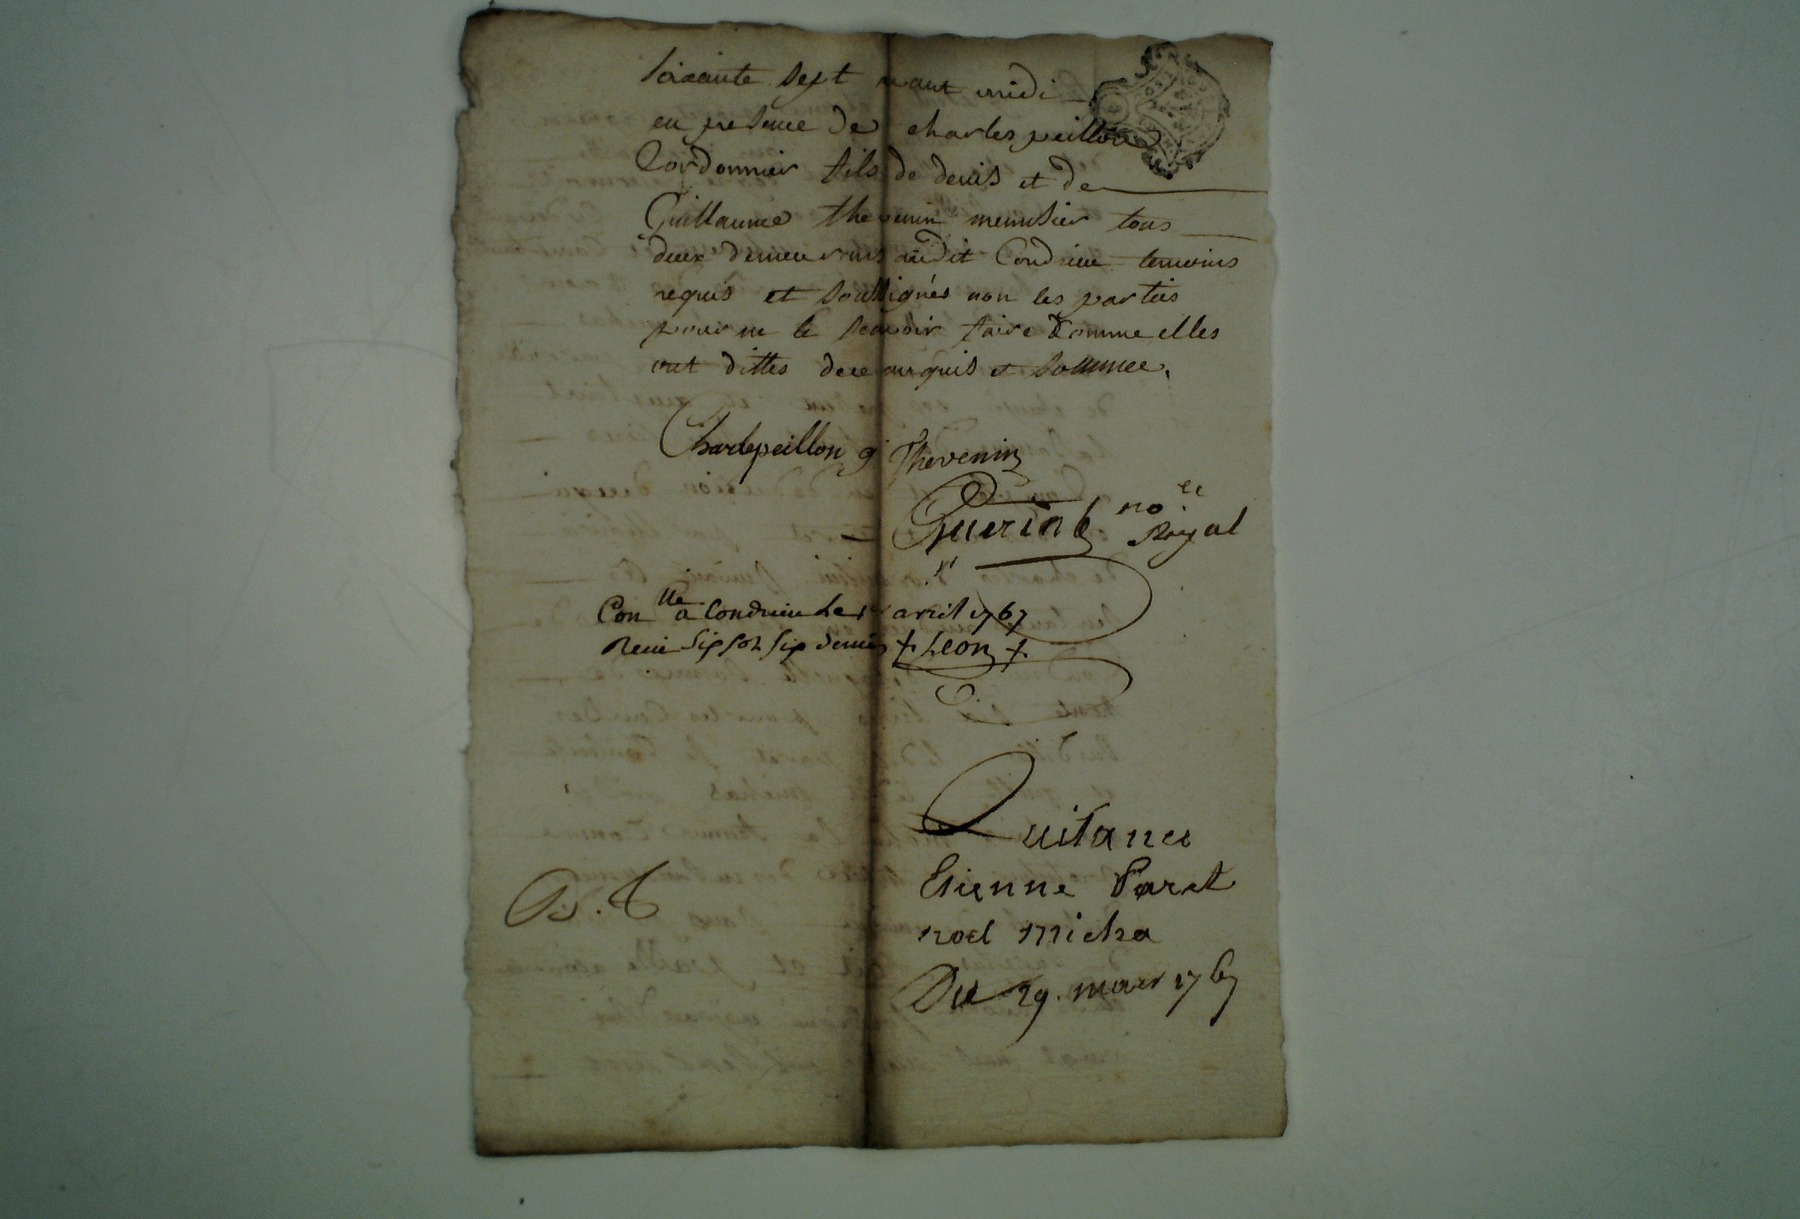 soixante sept avant midi
en presence de charles peillon
Cordonnier fils de denis et de
Guillaume thevenin menusier tous
deux demeurans audit Condrieu temoins
requis et soussignés non les parties
pour ne le scavoir faire comme elles
ont dittes de ce enquis et sommee.
Charlepeillon g thevenin
Guerin no.re
Royal
Con.lle a Condrieu Le 1er avril 1767
Receu six sols six deniers + Leon +
Quitance
Etienne Paret
noel micha
Du 29. mars 1767